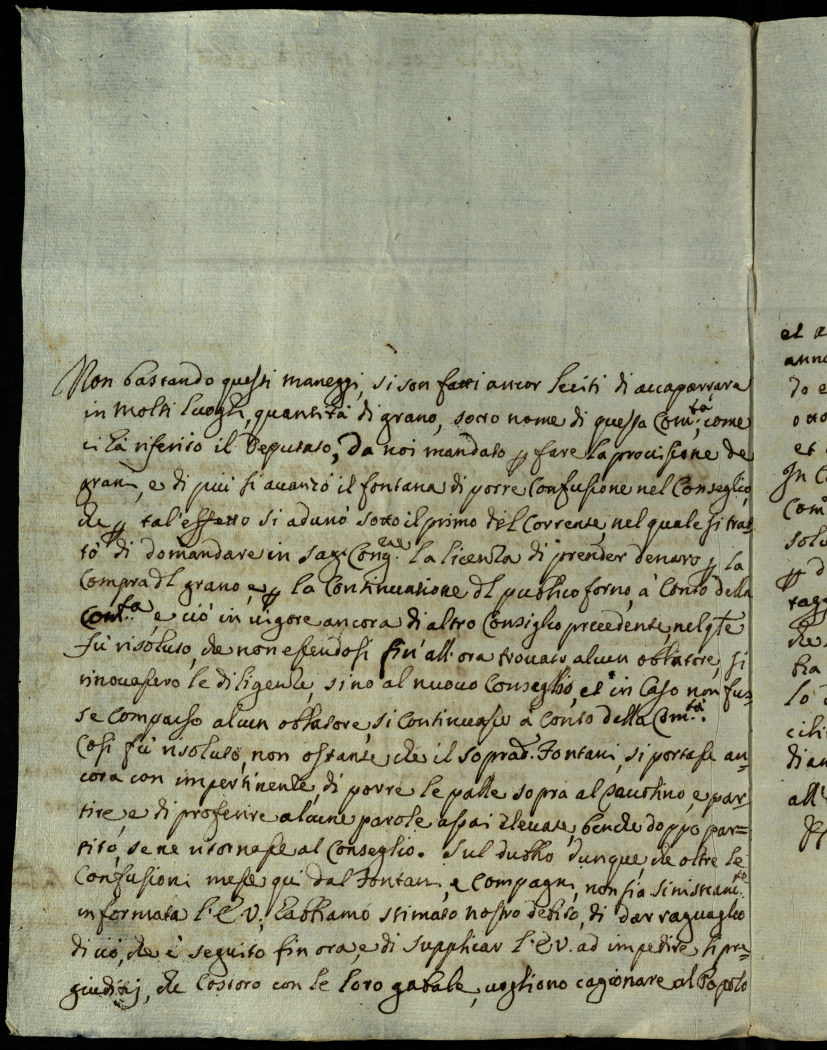 Non bastando questi maneggi, si son fatti ancor leciti di accaparrare
in molti luoghi, quantità di grano, sotto nome di questa Com.tà, come
ci hà riferito il Deputato, da noi mandato p fare la provisione de
grani, e di più si avanzò il fontana di porre confusione nel Conseglio,
che p tal'effetto si adunò sotto il primo del Corrente, nel quale si trat=
tò di domandare in sag. Cong.ne la licenza di prender denaro p la
Compra dl grano, e p la Continuatione dl publico forno, à Conto della
Com.tà e ciò in vigore ancora di altro Consiglio precedente, nel qle
fù risoluto, che non essendosi fin'all'ora trovato alcun oblatore, si
rinovassero le diligenze, sino al nuovo Conseglio, et in Caso non fus=
se comparso alcun oblatore, si continuasse à Conto della Com.tà.
Così fù risoluto, non ostante che il soprad. Fontani, si portasse an=
cora con impertinenze, di porre le palle sopra al , e par=
tire, e di proferire alcune parole assai elevate, benche doppo par=
tito, se ne ritornasse al Conseglio. Sul dubbio dunque, che oltre le
Confusioni messe quì dal Fontani, e Compagni, non sia sinistram.te
informata l'E.V., habbiamo stimato nostro debito, di dar raguaglio
di ciò, che è seguito fin ora, e di supplicar l'E.V. ad impedire li pre=
giuditij, che Costoro con le loro gabale, vogliono cagionare al Popolo
et